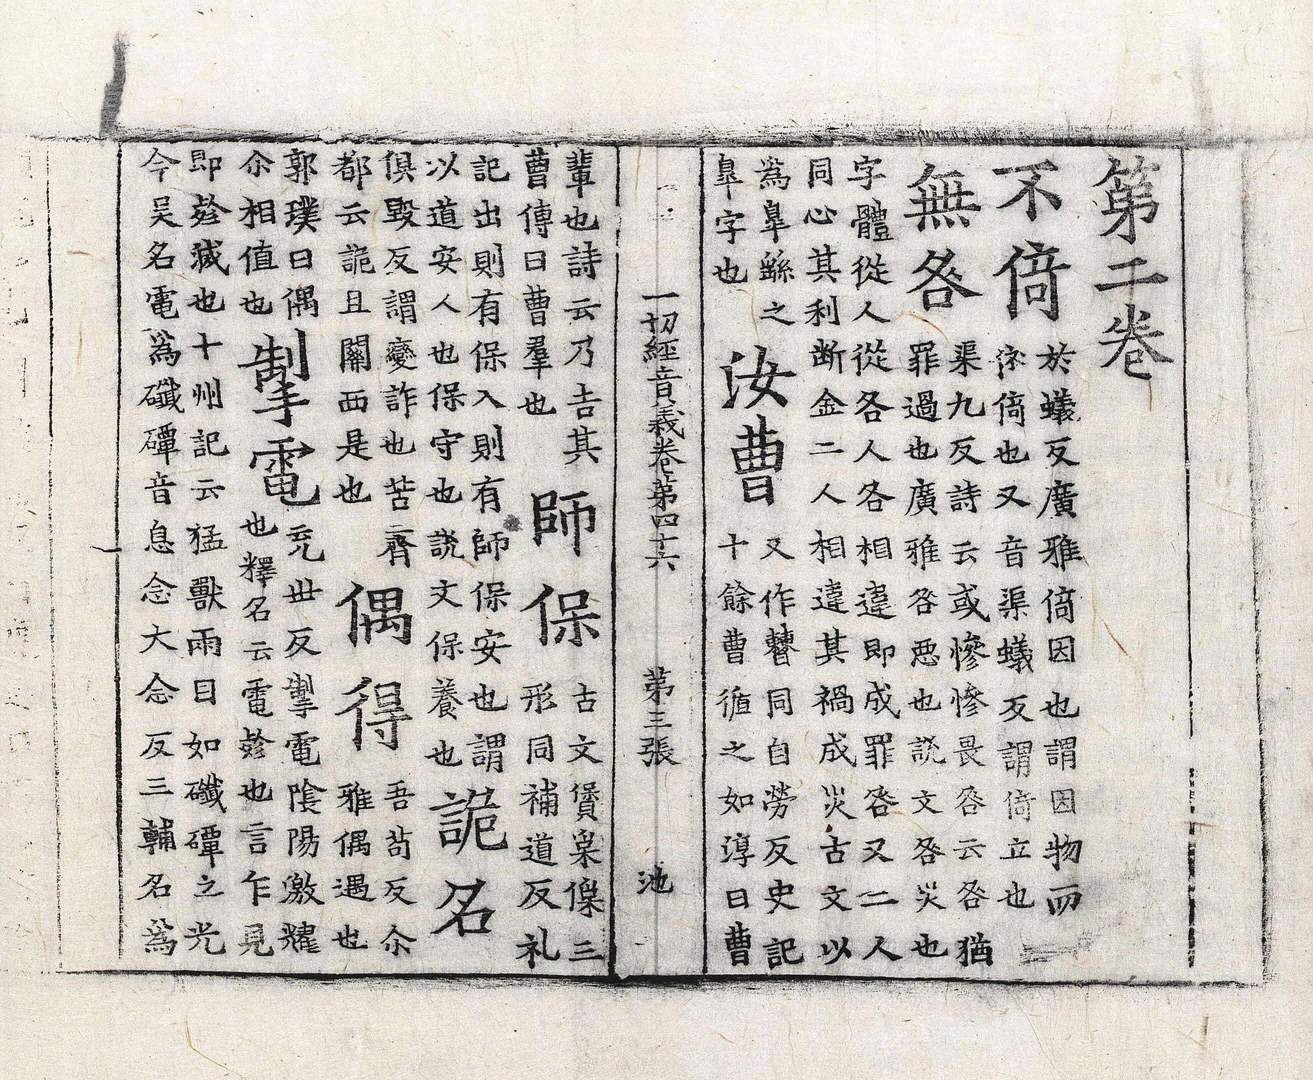 第二卷
不倚
於蟻反廣雅倚因也謂因物而
依倚也又音渠蟻反謂倚立也
無咎
渠九反詩云或慘慘畏咎云咎猶
罪過也廣雅咎惡也說文咎災也
字體從人從各人各相違即成罪咎又二人
同心其利断金二人相違其禍成災古文以
為皐繇之
皐字也
汝曹
又作同自勞反史記
十餘曹循之如淳曰曹
一切經音義卷第四十六 第三張 池
輩也詩云乃吉其
曹傳曰曹羣也
師保
古文三
形同補道反礼
記出則有保入則有師保安也謂
以道安人也保守也說文保養也
詭名
俱毀反謂變詐也苦齊
都云詭且關西是也
偶得
吾苟反尒
雅偶遇也
郭璞曰偶
尒相值也
掣電
充世反掣電陰陽激耀
也釋名云電殄也言乍見
即殄滅也十州記云猛獸兩目如䃸磹之光
今吴名電為䃸磹音息念大念反三輔名為